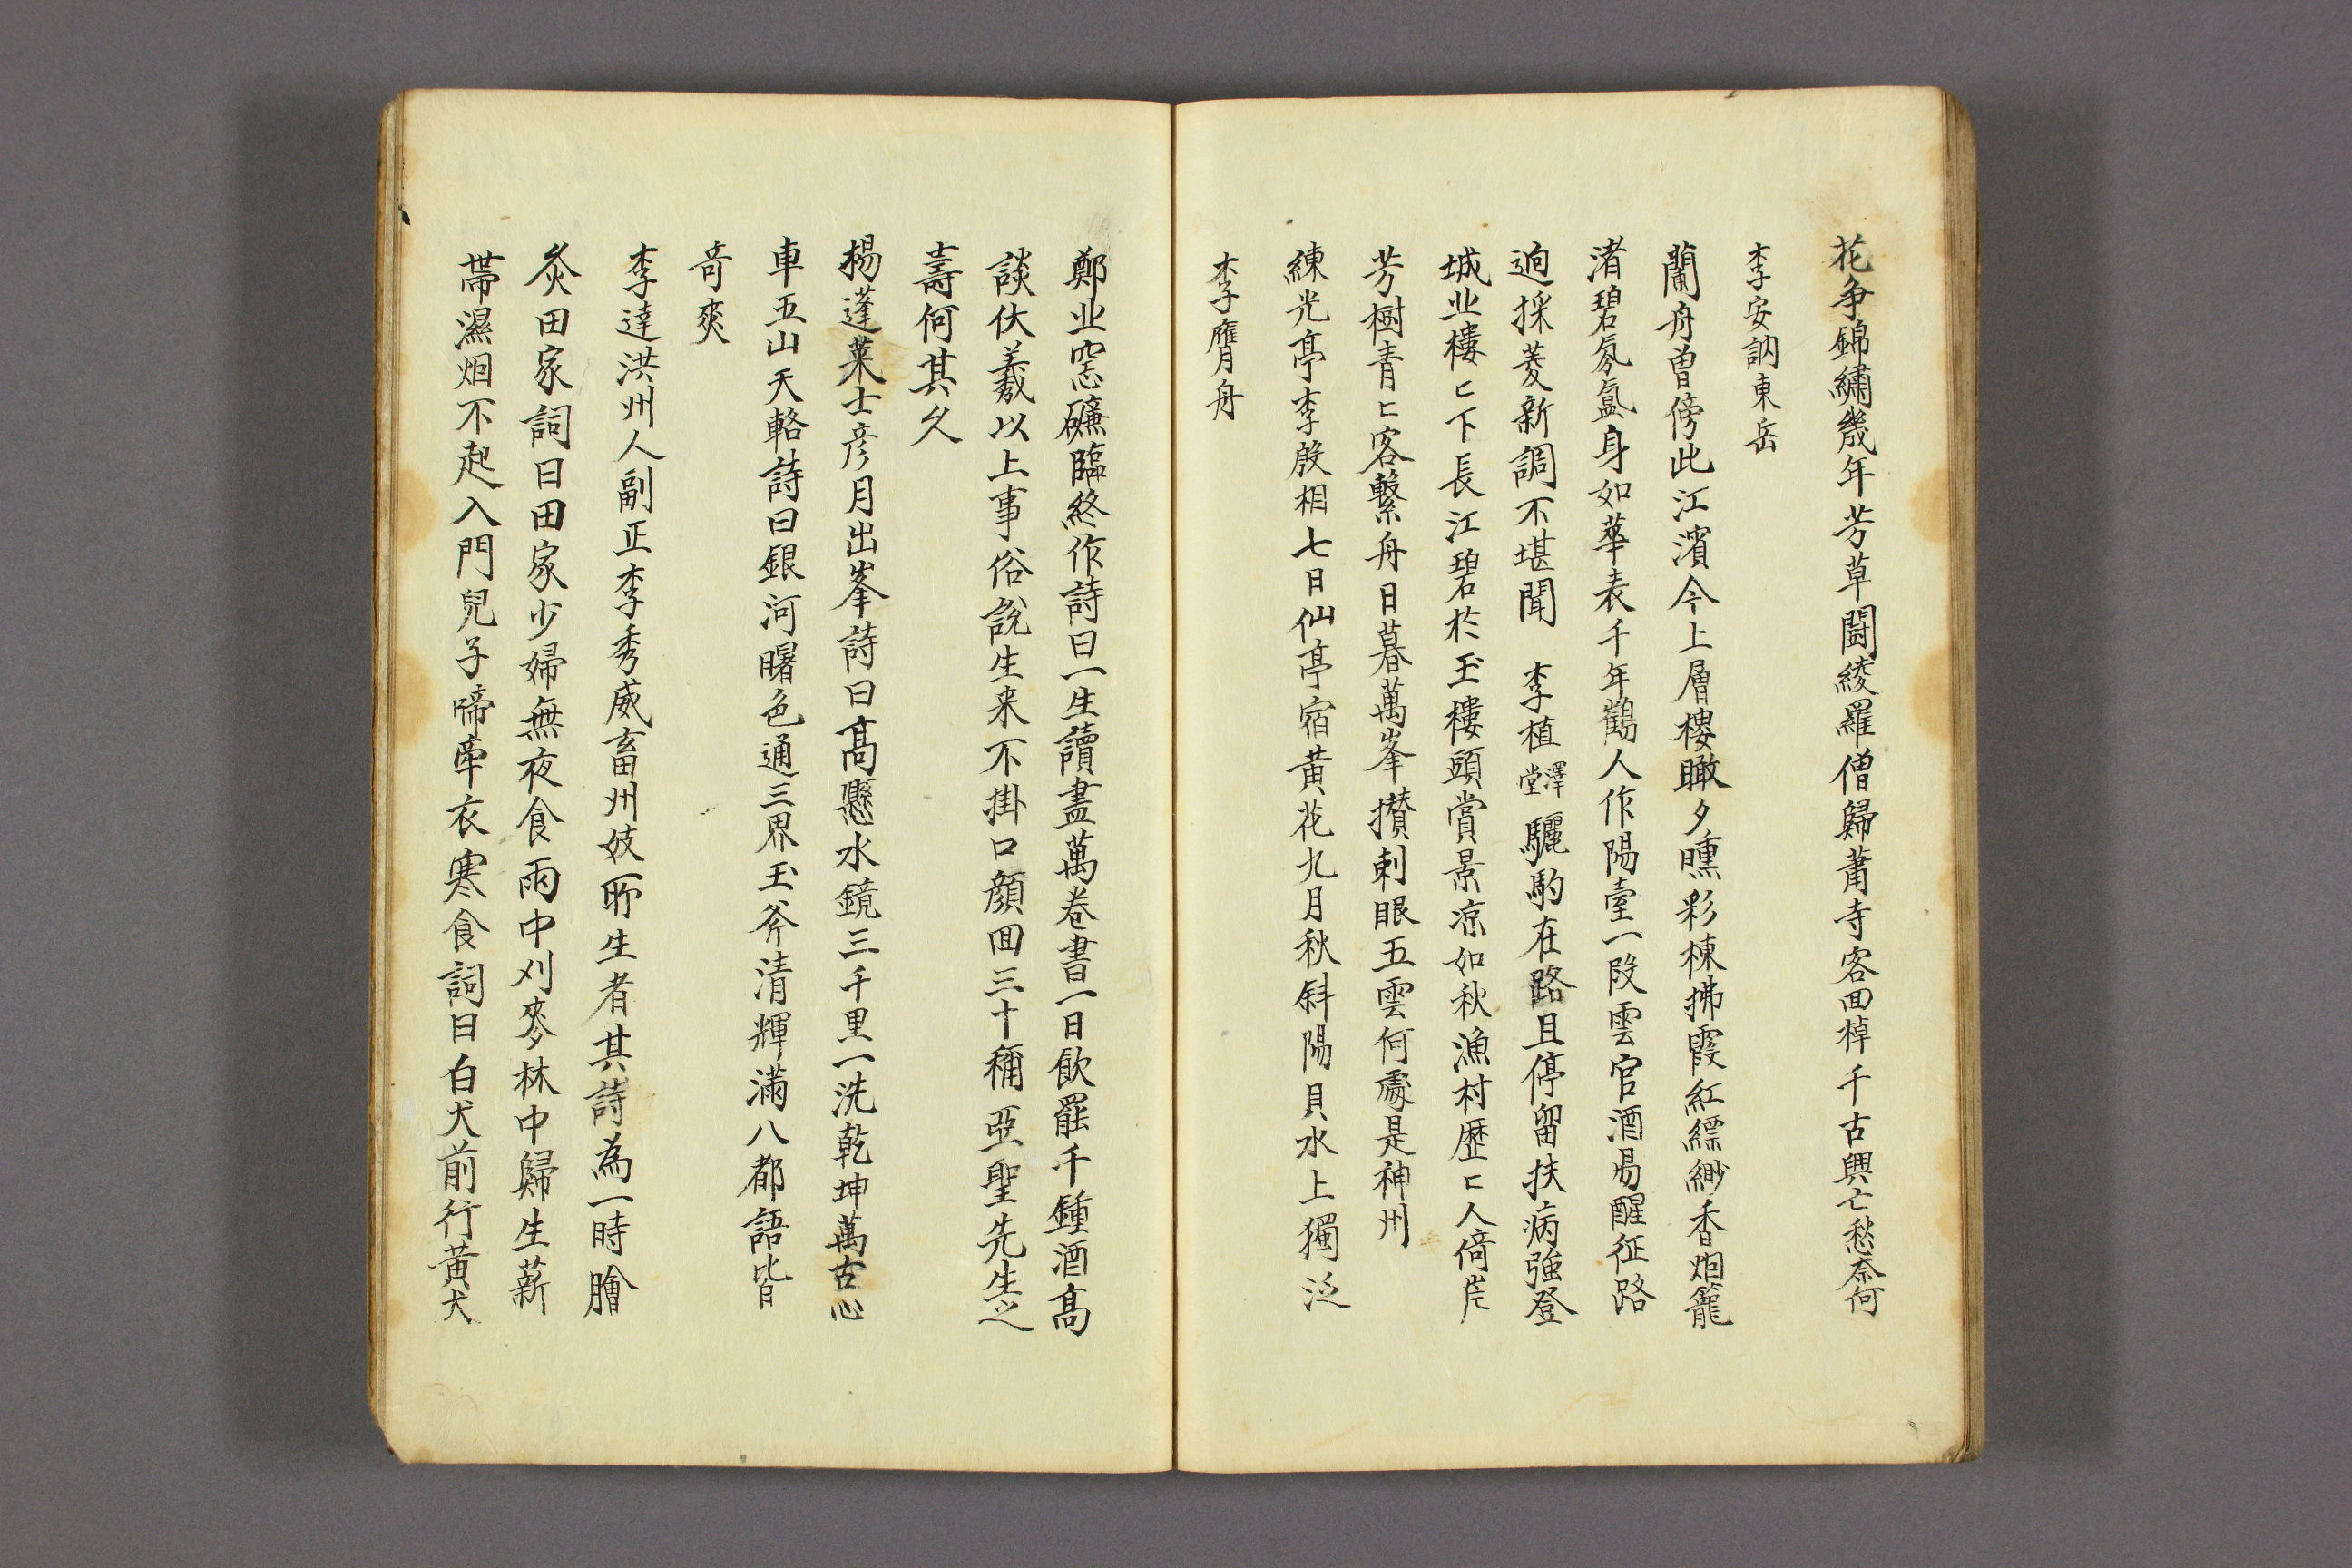 花争錦繡幾年芳草鬪綾羅僧歸蕭寺客回棹千古興亡愁奈何
李安訥東岳
蘭舟曽傍此江濱今上層樓瞰夕曛彩棟拂霞紅縹緲香烟籠
渚碧氛氳身如華表千年鶴人作陽臺一段雲官酒易醒征路
逈採菱新調不堪聞　李植澤堂　驪駒在路且停留扶病強登
城北樓〻下長江碧於玉樓頭賞景凉如秋漁村歷〻人倚岸
芳樹青〻客繫舟日暮萬峯攅刺眼五雲何處是神州
練光亭李殷相七日仙亭宿黄花九月秋斜陽貝水上獨泛
李膺舟
鄭北窓𥖝臨終作詩曰一生讀盡萬卷書一日飮罷千鍾酒高
談伏羲以上事俗說生来不掛口顔回三十稱亞聖先生之
壽何其久
楊蓬萊士彦月出峯詩曰高懸水鏡三千里一洗乾坤萬古心
車五山天輅詩曰銀河曙色通三界玉斧清輝滿八都語皆
奇爽
李達洪州人副正李秀威畜州妓所生者其詩為一時膾
炙田家詞曰田家少婦無夜食雨中刈麥林中歸生薪
帶濕烟不起入門兒子啼牽衣寒食詞曰白犬前行黄犬